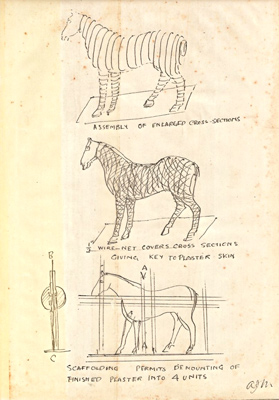 ASSEMBLY OF ENLARGED CROSS-SECTIONS
WIRE-NET COVERS CROSS SECTIONS
GIVING KEY TO PLASTER SKIN
B
A
V
A
C
SCAFFOLDING PERMITS DEMOUNTING OF
FINISHED PLASTER INTO 4 UNITS